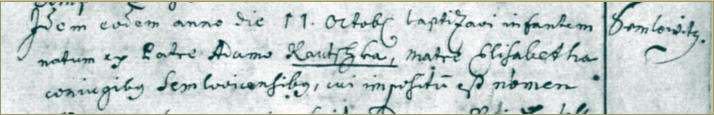 Idem eodem anno die 11. Octobr baptizavi infantem
natum ex Patre Adamo Rautzka, matre Elisabetha
coniugibus Semlovicensibus, cui impositũ est nomen
Semlowitz.